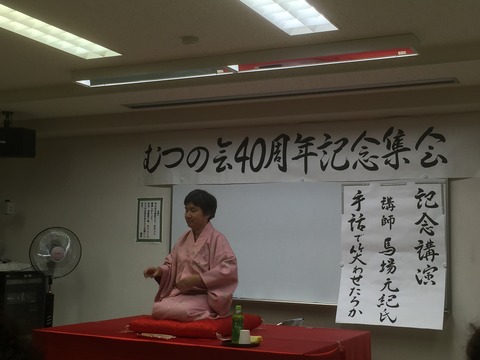 むつの会40周年記念集会
記念講演
講師 馬場元紀氏
手話で笑わせたろか